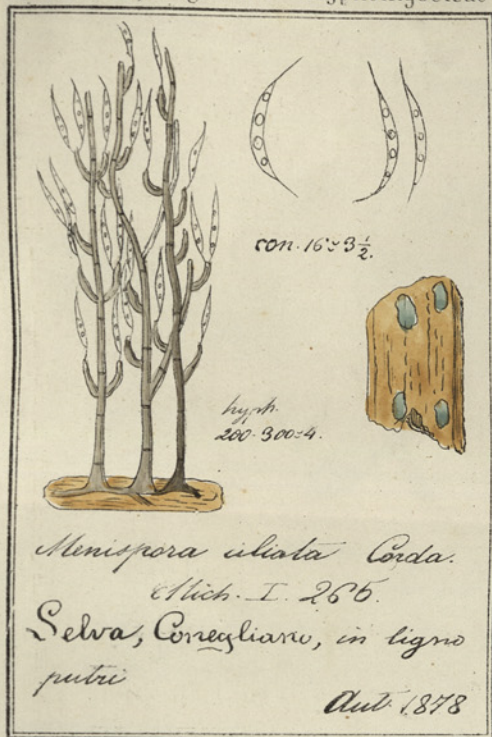 con. 16≈3½.
hyph.
200-300≈4.
Menispora ciliata Corda.
Mich. I. 265.
Selva, Conegliano, in ligno
putri
Aut. 1878